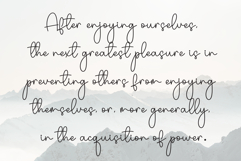 After enjoying ourselves,
the next greatest pleasure is in
preventing others from enjoying
themselves, or, more generally,
in the acquisition of power.